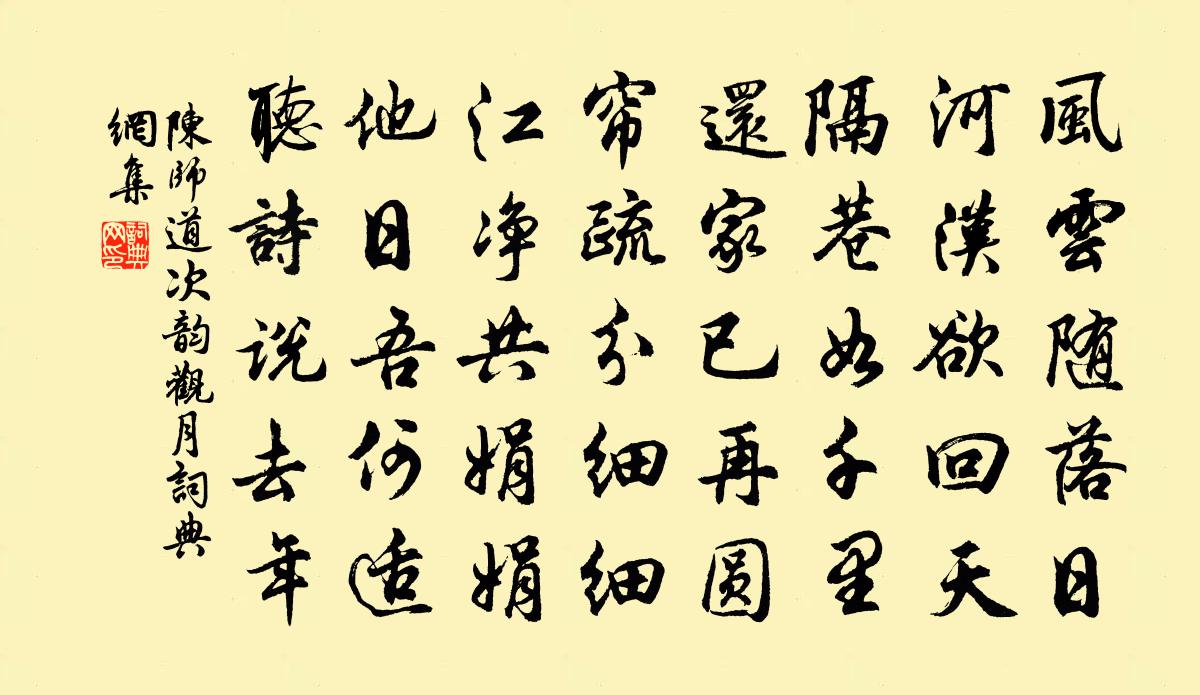 風雲随落日
河漢欲回天
隔巷如千里
還家已再圓
帘疏分細細
江净共娟娟
他日吾何适
聽詩説去年
陳師道次韵觀月詞典
網集
詞典
网印